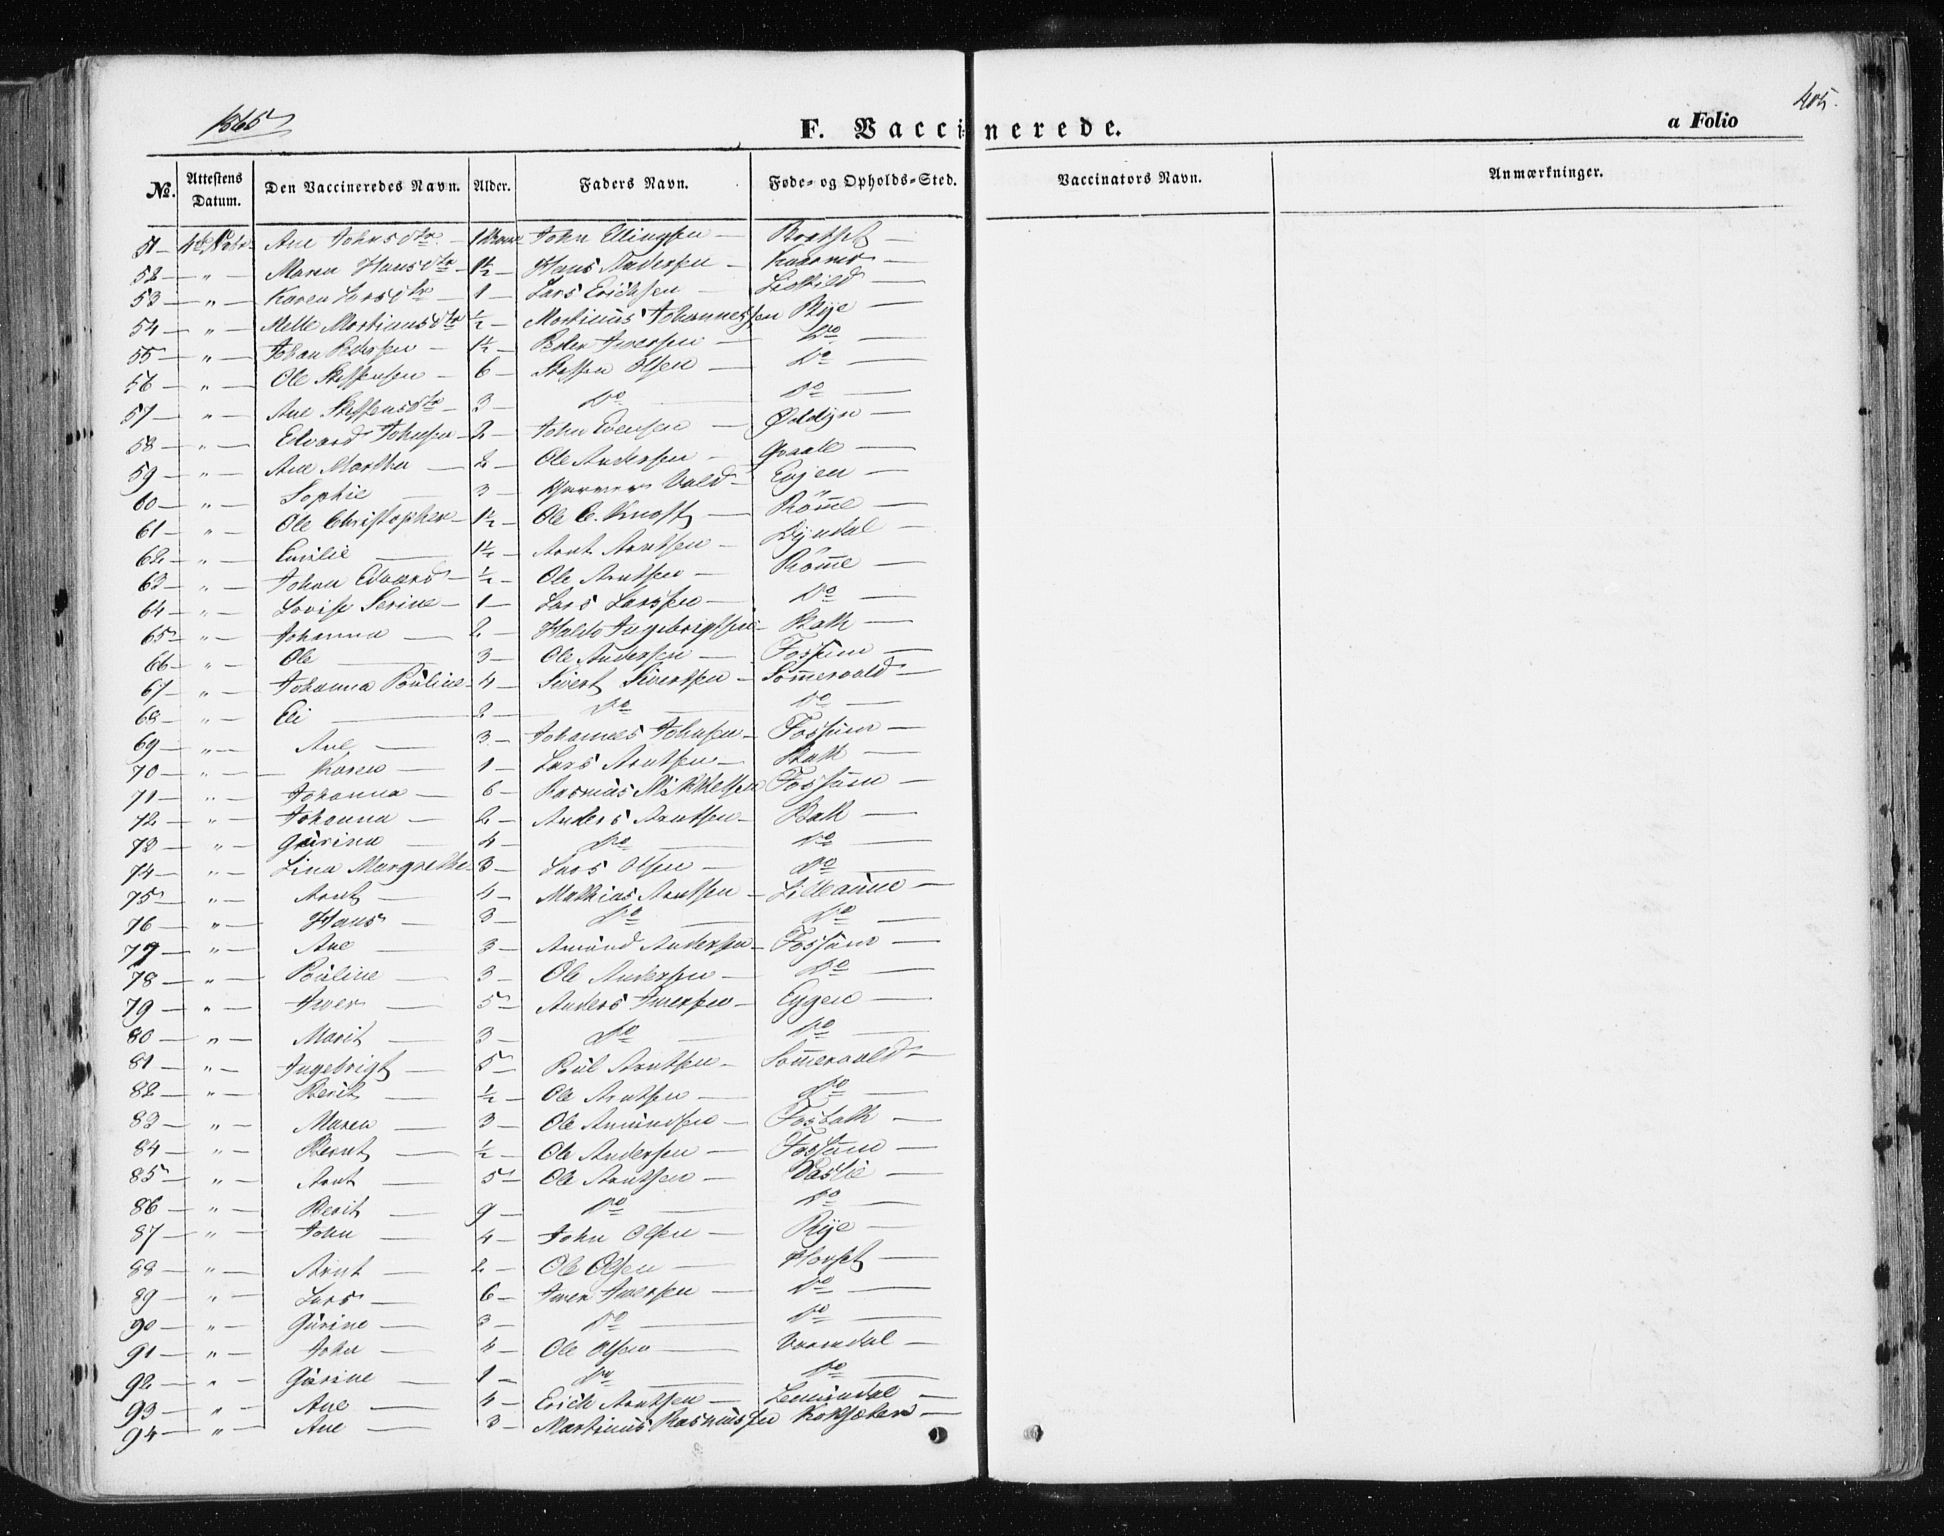 1865
F. Vaccinerede.
a Folio
405.
No. Attestens Datum. Den Vaccineredes Navn. Alder. Faders Navn. Føde- og Opholds-Sted. Vaccinators Navn. Anmærkninger.
51 — Ane Johnsdtr — 1 John Ellingsen — Bratset —
52 — " — Maren Hansdtr — 1½ — Hans Andersen —
53 — " — Karen Larsdtr — 1 — Lars Erichsen —
54 — " — Mette Martinusdtr ½ — Martinus Johannessen Rye —
55 — " — Johan Pedersen — 1½ — Peder Iversen — Do —
56 — " — Ole Steffensen — 6 — Steffen Olsen — Do —
57 — " — Ane Steffensdtr — 3 — Do — Do —
58 — " — Edvard Johnsen — 2 — John Evensen —
59 — " — Ane Martha — 2 — Ole Andersen —
60 — " — Sophie — 3 — Vold — Evjen —
61 — " — Ole Christopher — 1½ — Ole C. Knoft — Rømme —
62 — " — Emilie — 1½ — Arnt Arntsen —
63 — " — Johan Edvard — ½ — Ole Arntsen — Rømme —
64 — " — Lovise Serine — 1 — Lars Larssen — Do —
65 — " — Johanna — 2 — Haldo Ingebrigtsen — Bak —
66 — " — Ole — 3 — Ole Andersen — Fossum —
67 — " — Johanna Pauline — 4 — Sivert Sivertsen — Sommervold —
68 — " — Eli — 2 — Do — Do —
69 — " — Ane — 3 — Johannes Johnsen — Fossum —
70 — " — Karen — 1 — Lars Arntsen — Bak —
71 — " — Johanna — 6 — Rasmus Mikkelsen Fossum —
72 — " — Johanna — 2 — Anders Arntsen — Bak —
73 — " — Gurina — 4 — Do — Do —
74 — " — Lina Margrethe — 3 — Lars Olsen — Do —
75 — " — Arnt — 4 — Mathias Arntsen — Lilleaune —
76 — " — Hans — 3 — Do — Do —
77 — " — Ane — 3 — Amund Andersen — Fossum —
78 — " — Pauline — 3 — Ole Andersen — Do —
79 — " — Iver — 5 — Anders Iversen — Eggen —
80 — " — Marit — 3 — Do — Do —
81 — " — Ingebrigt — 5 — Poul Arntsen — Sommervold —
82 — " — Berit — ½ — Ole Arntsen — Do —
83 — " — Maren — 3 — Ole Amundsen — Fosbak —
84 — " — Bernt — ½ — Ole Andersen — Fossum —
85 — " — Arnt — 5 — Ole Arntsen —
86 — " — Berit — 9 — Do — Do —
87 — " — John — 4 — John Olsen — Rye —
88 — " — Arnt — 2 — Ole Olsen — Horset —
89 — " — Lars — 6 — Iver Iversen — Do —
90 — " — Gurine — 3 — Do — Do —
91 — " — John — 4 — Ole Olsen — Vormdal —
92 — " — Gurine — 1 — Do — Do —
93 — " — Ane — 4 — Erich Arntsen —
94 — " — Ane — 3 — Martinus Rasmussen Koksæter —